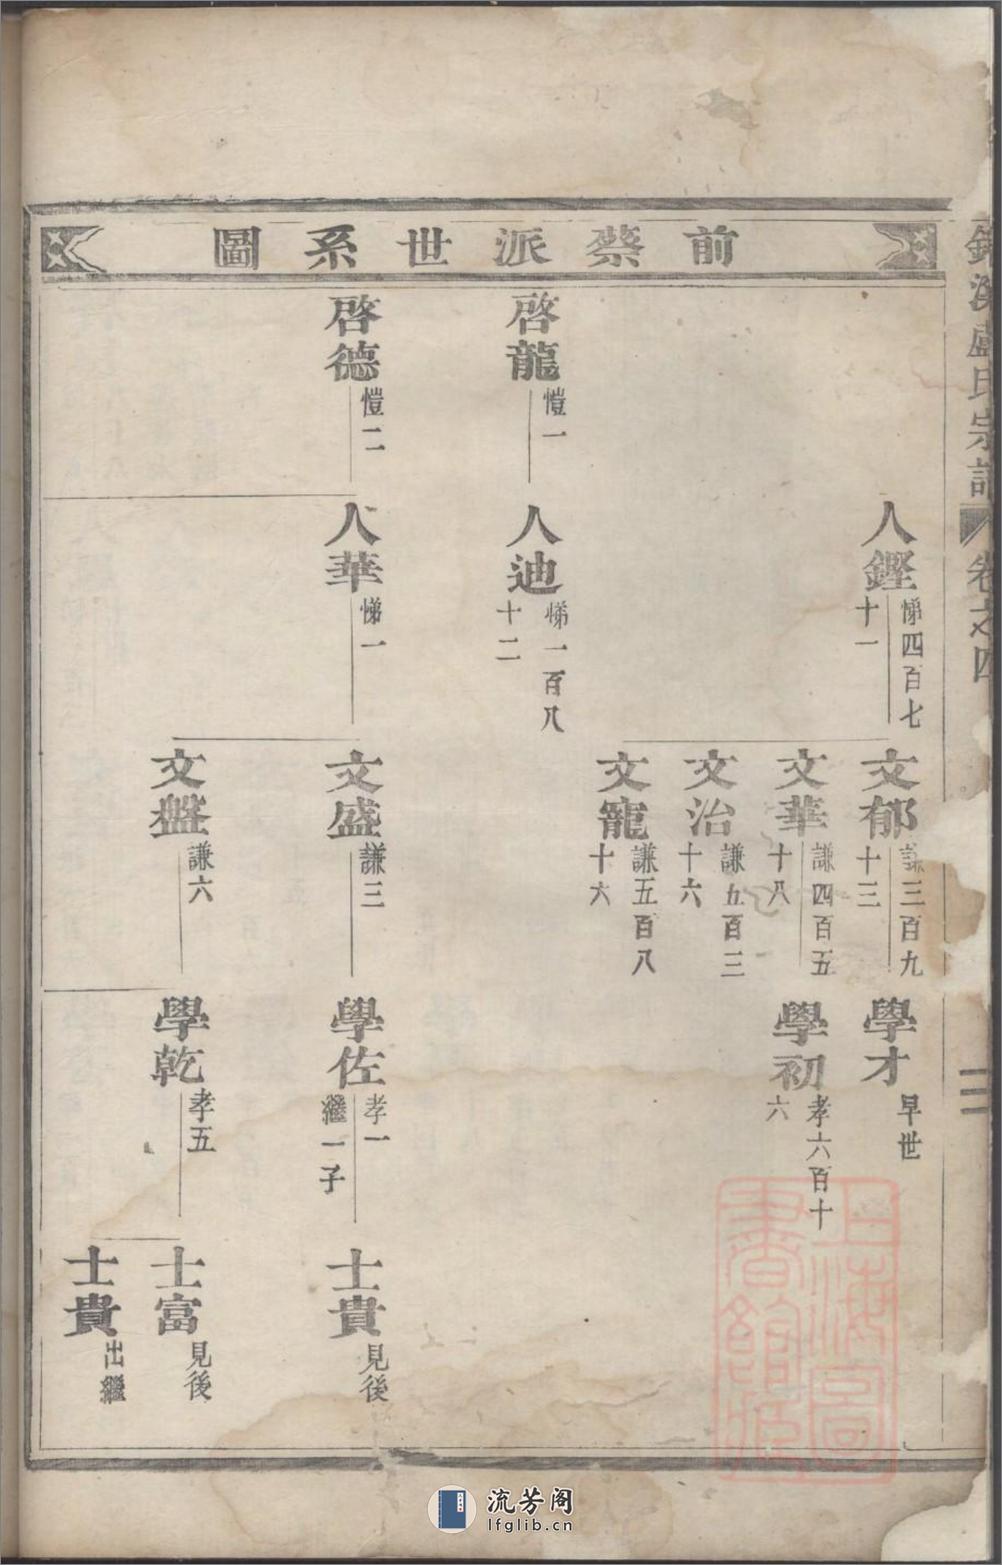 前蔡派世系圖
盧氏宗譜
卷之四
人鏗 悌四百七十一
文郁 謙三百九十三
學才 早世
文華 謙四百五十八
學初 孝六百十六
文治 謙五百三十六
文寵 謙五百八十六
啓龍 愷一
人迪 悌一百八十二
啓德 愷二
人華 悌一
文盛 謙三
學佐 孝一 繼一子
士貴 見後
文盤 謙六
學乾 孝五
士富 見後
士貴 出繼
上海圖書館藏
流芳阁
lfglib.cn